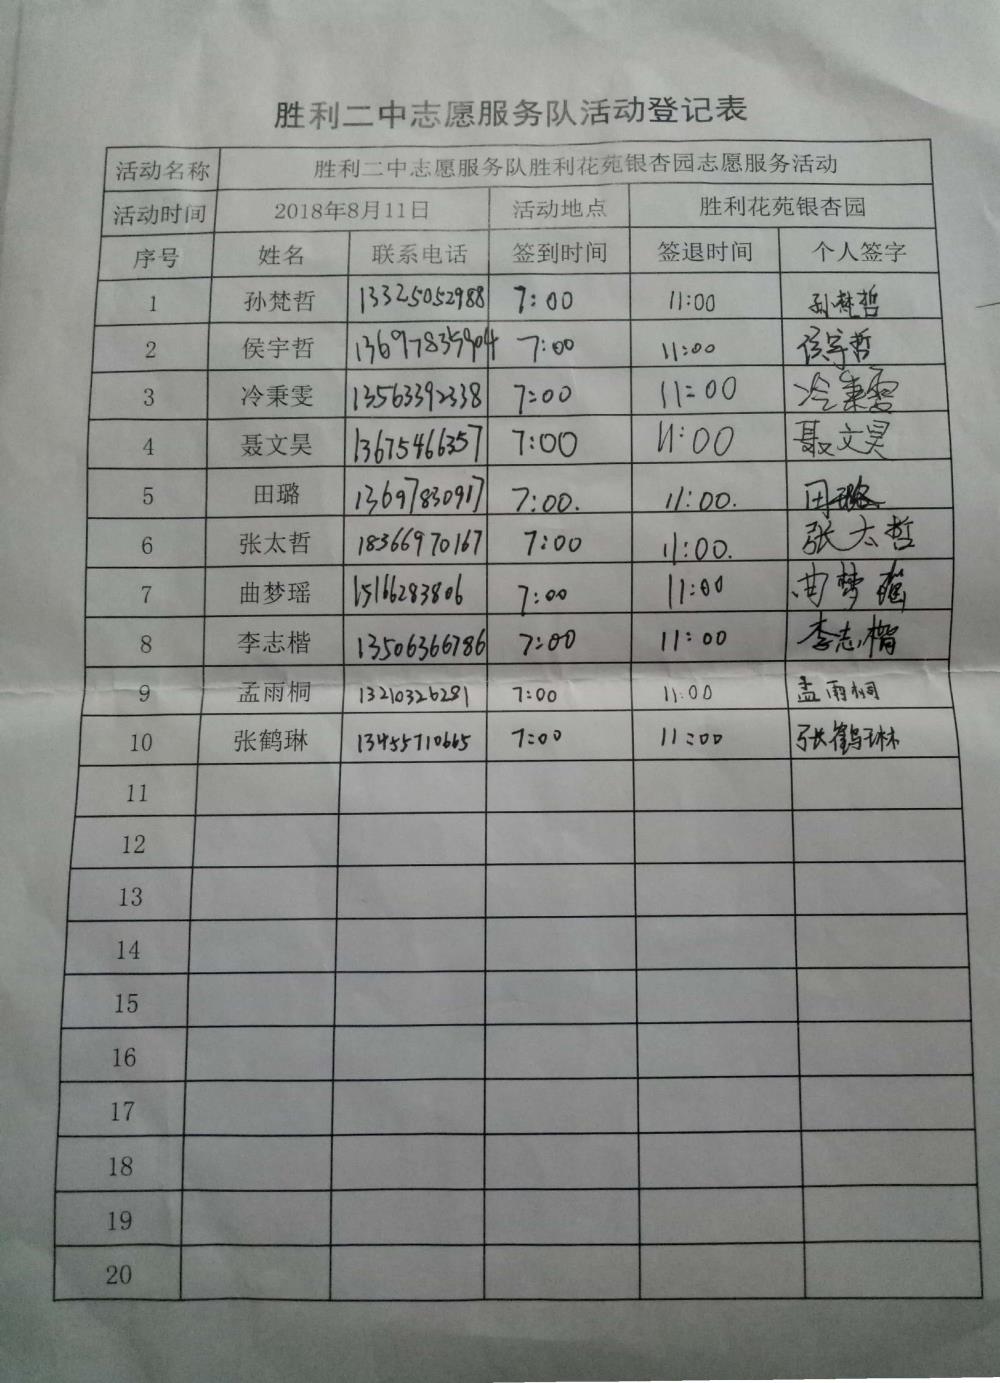 胜利二中志愿服务队活动登记表
活动名称 胜利二中志愿服务队胜利花苑银杏园志愿服务活动
活动时间 2018年8月11日 活动地点 胜利花苑银杏园
序号 姓名 联系电话 签到时间 签退时间 个人签字
1 孙梵哲 13325052988 7:00 11:00 孙梵哲
2 侯宇哲 13697835904 7:00 11:00 侯宇哲
3 冷秉雯 13563392338 7:00 11:00 冷秉雯
4 聂文昊 13675466357 7:00 11:00 聂文昊
5 田璐 13697830917 7:00. 11:00. 田璐
6 张太哲 18366970167 7:00 11:00. 张太哲
7 曲梦瑶 15166283806 7:00 11:00 曲梦瑶
8 李志楷 13506366786 7:00 11:00 李志楷
9 孟雨桐 13210326281 7:00 11:00 孟雨桐
10 张鹤琳 13455710665 7:00 11:00 张鹤琳
11
12
13
14
15
16
17
18
19
20